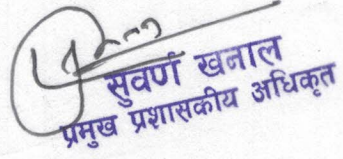 सुवर्ण खनाल
प्रमुख प्रशासकीय अधिकृत